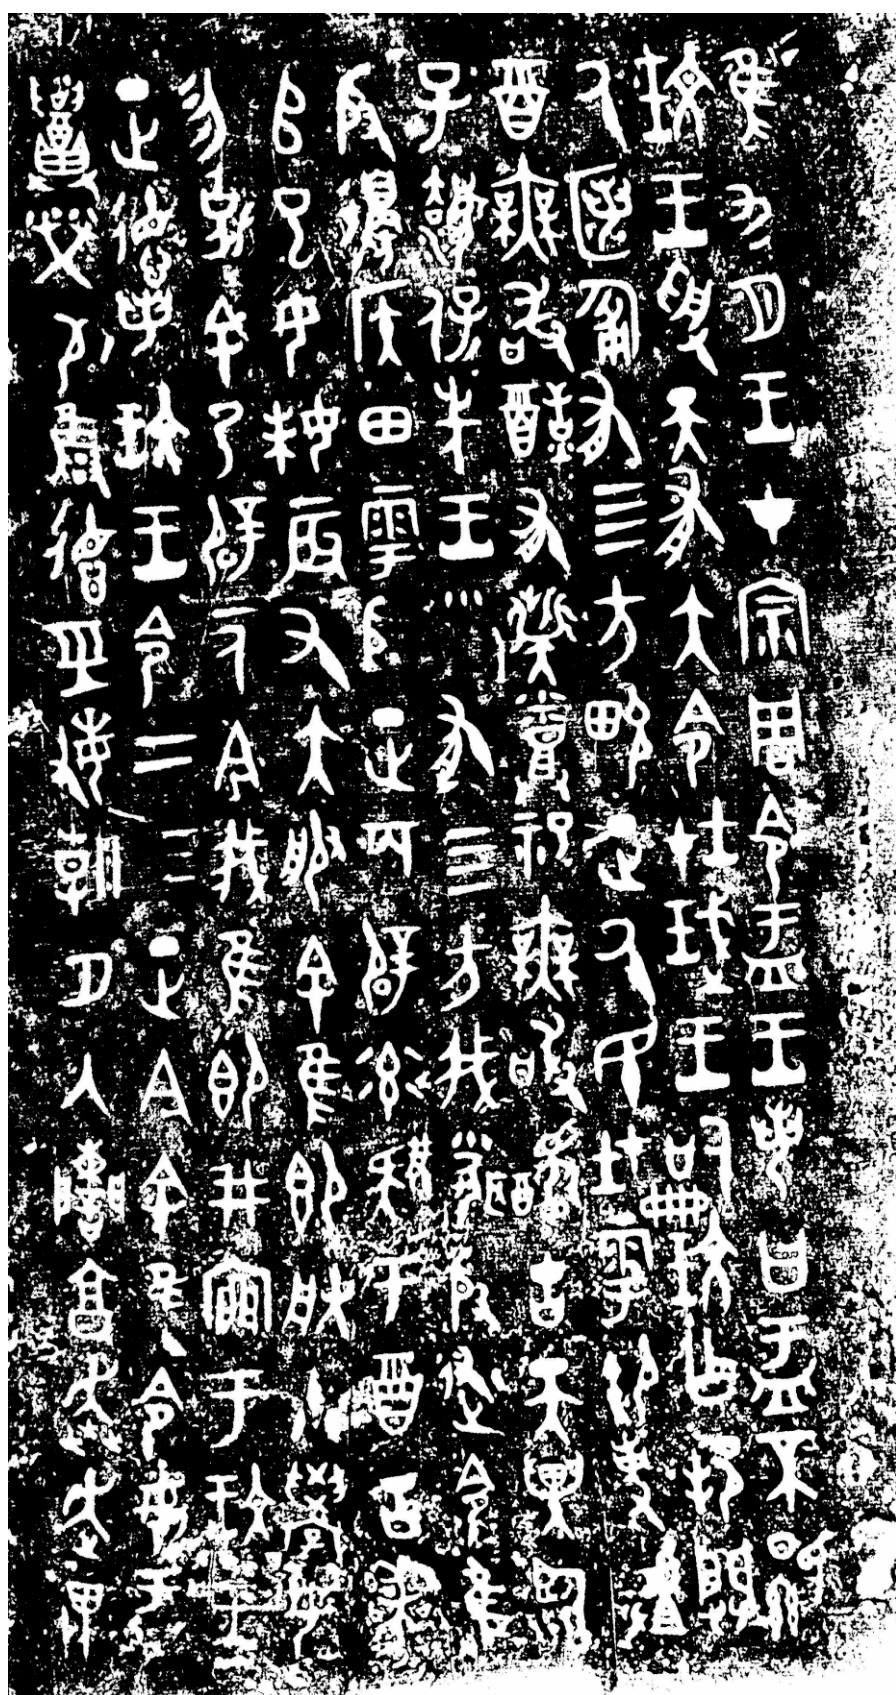 隹九月王才宗周令盂王若曰盂不顯
玟王受天有大令在珷王嗣玟乍邦闢
厥匿匍有四方畯正厥民在雩御事𠭯
酉無敢酖有柴烝祀無敢擾古天異臨
子灋保先王有四方我聞殷述令隹
殷邊侯田雩殷正百辟率肄于酉古喪
𠂤巳女妹辰又大服余隹即朕小學女
勿克余乃辟一人今我隹即井廩于玟王
正德若玟王令二三正今余隹令女盂
召榮敬雝德巠敏朝夕入讕享奔走畏